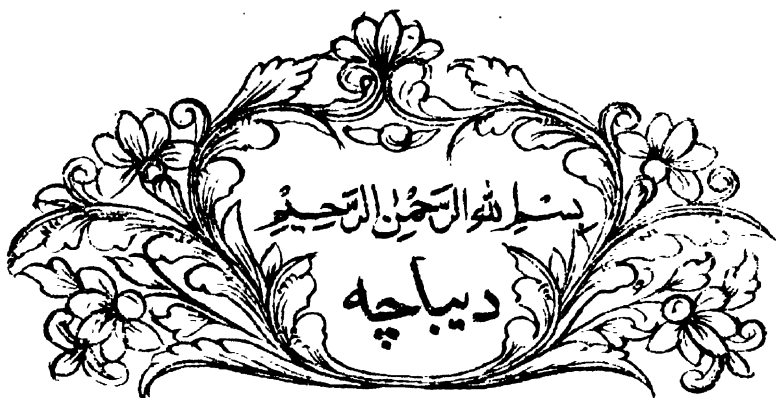 بِسْمِ اللهِ الرَّحْمٰنِ الرَّحِيْمِ
ديباچه